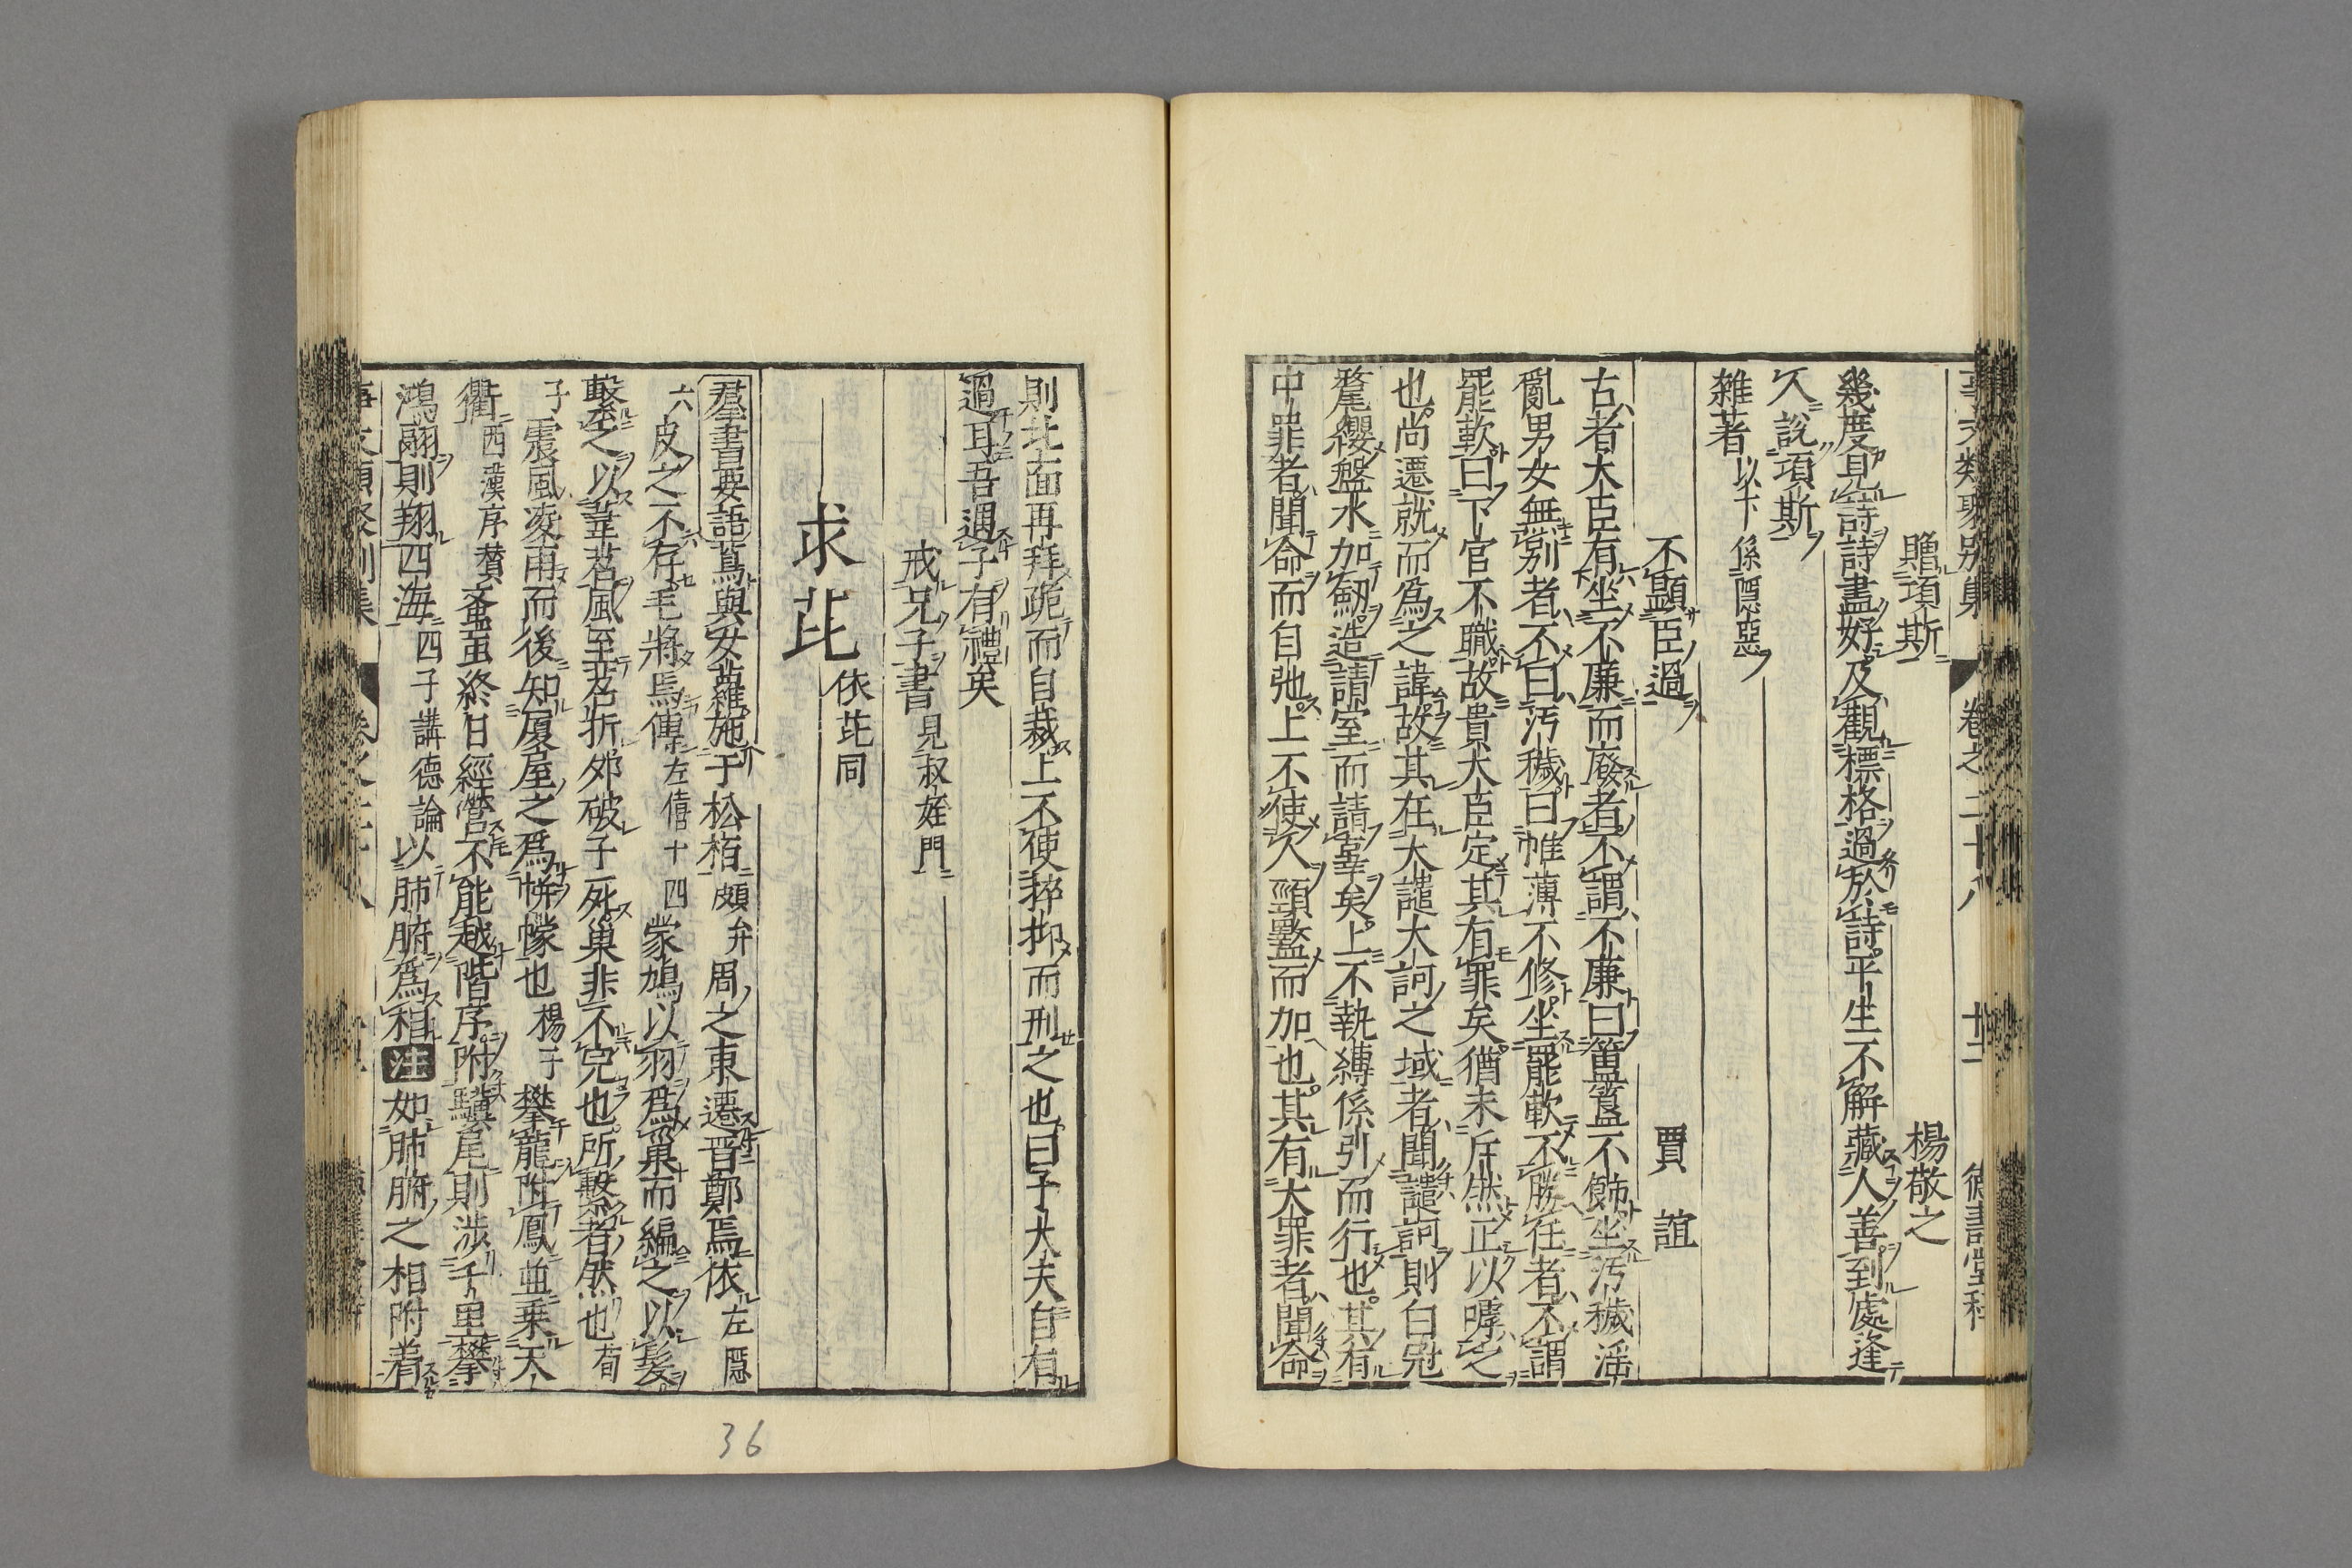 贈項斯 楊敬之
幾度見詩詩盡好及觀標格過於詩平生不解藏人善到處逢
人說項斯
雜著 以下係隱惡
不顯臣過 賈誼
古者大臣有坐不廉而廢者不謂不廉曰簠簋不飾坐汚穢淫
亂男女無別者不曰汚穢曰帷薄不修坐罷軟不勝任者不謂
罷軟曰下官不職故貴大臣定其有罪矣猶未斥然正以嘑之
也尚遷就而爲之諱故其在大譴大訶之域者聞譴訶則白冠
氂纓盤水加劒造請室而請辠矣上不執縛係引而行也其有
中罪者聞命而自弛上不使人頸盭而加也其有大罪者聞命
則北面再拜跪而自裁上不使捽抑而刑之也曰子大夫自有
過耳吾遇子有禮矣
戒兄子書 見叔姪門
求芘 依芘同
羣書要語蔦與女蘿施于松栢 頍弁 周之東遷晋鄭焉依 左隱
六 皮之不存毛將焉傳 左僖十四 蒙鳩以羽爲巢而編之以髮
繫之以葦苕風至苕折卵破子死巢非不完也所繫者然也 荀
子 震風凌雨而後知厦屋之爲帡幪也 楊子 攀龍附鳳並乗天
衢 西漢序賛 蚉䖟終日經營不能越階序附驥尾則渉千里攀
鴻翮則翔四海 四子講德論 以肺腑爲相 注 如肺腑之相附着
36